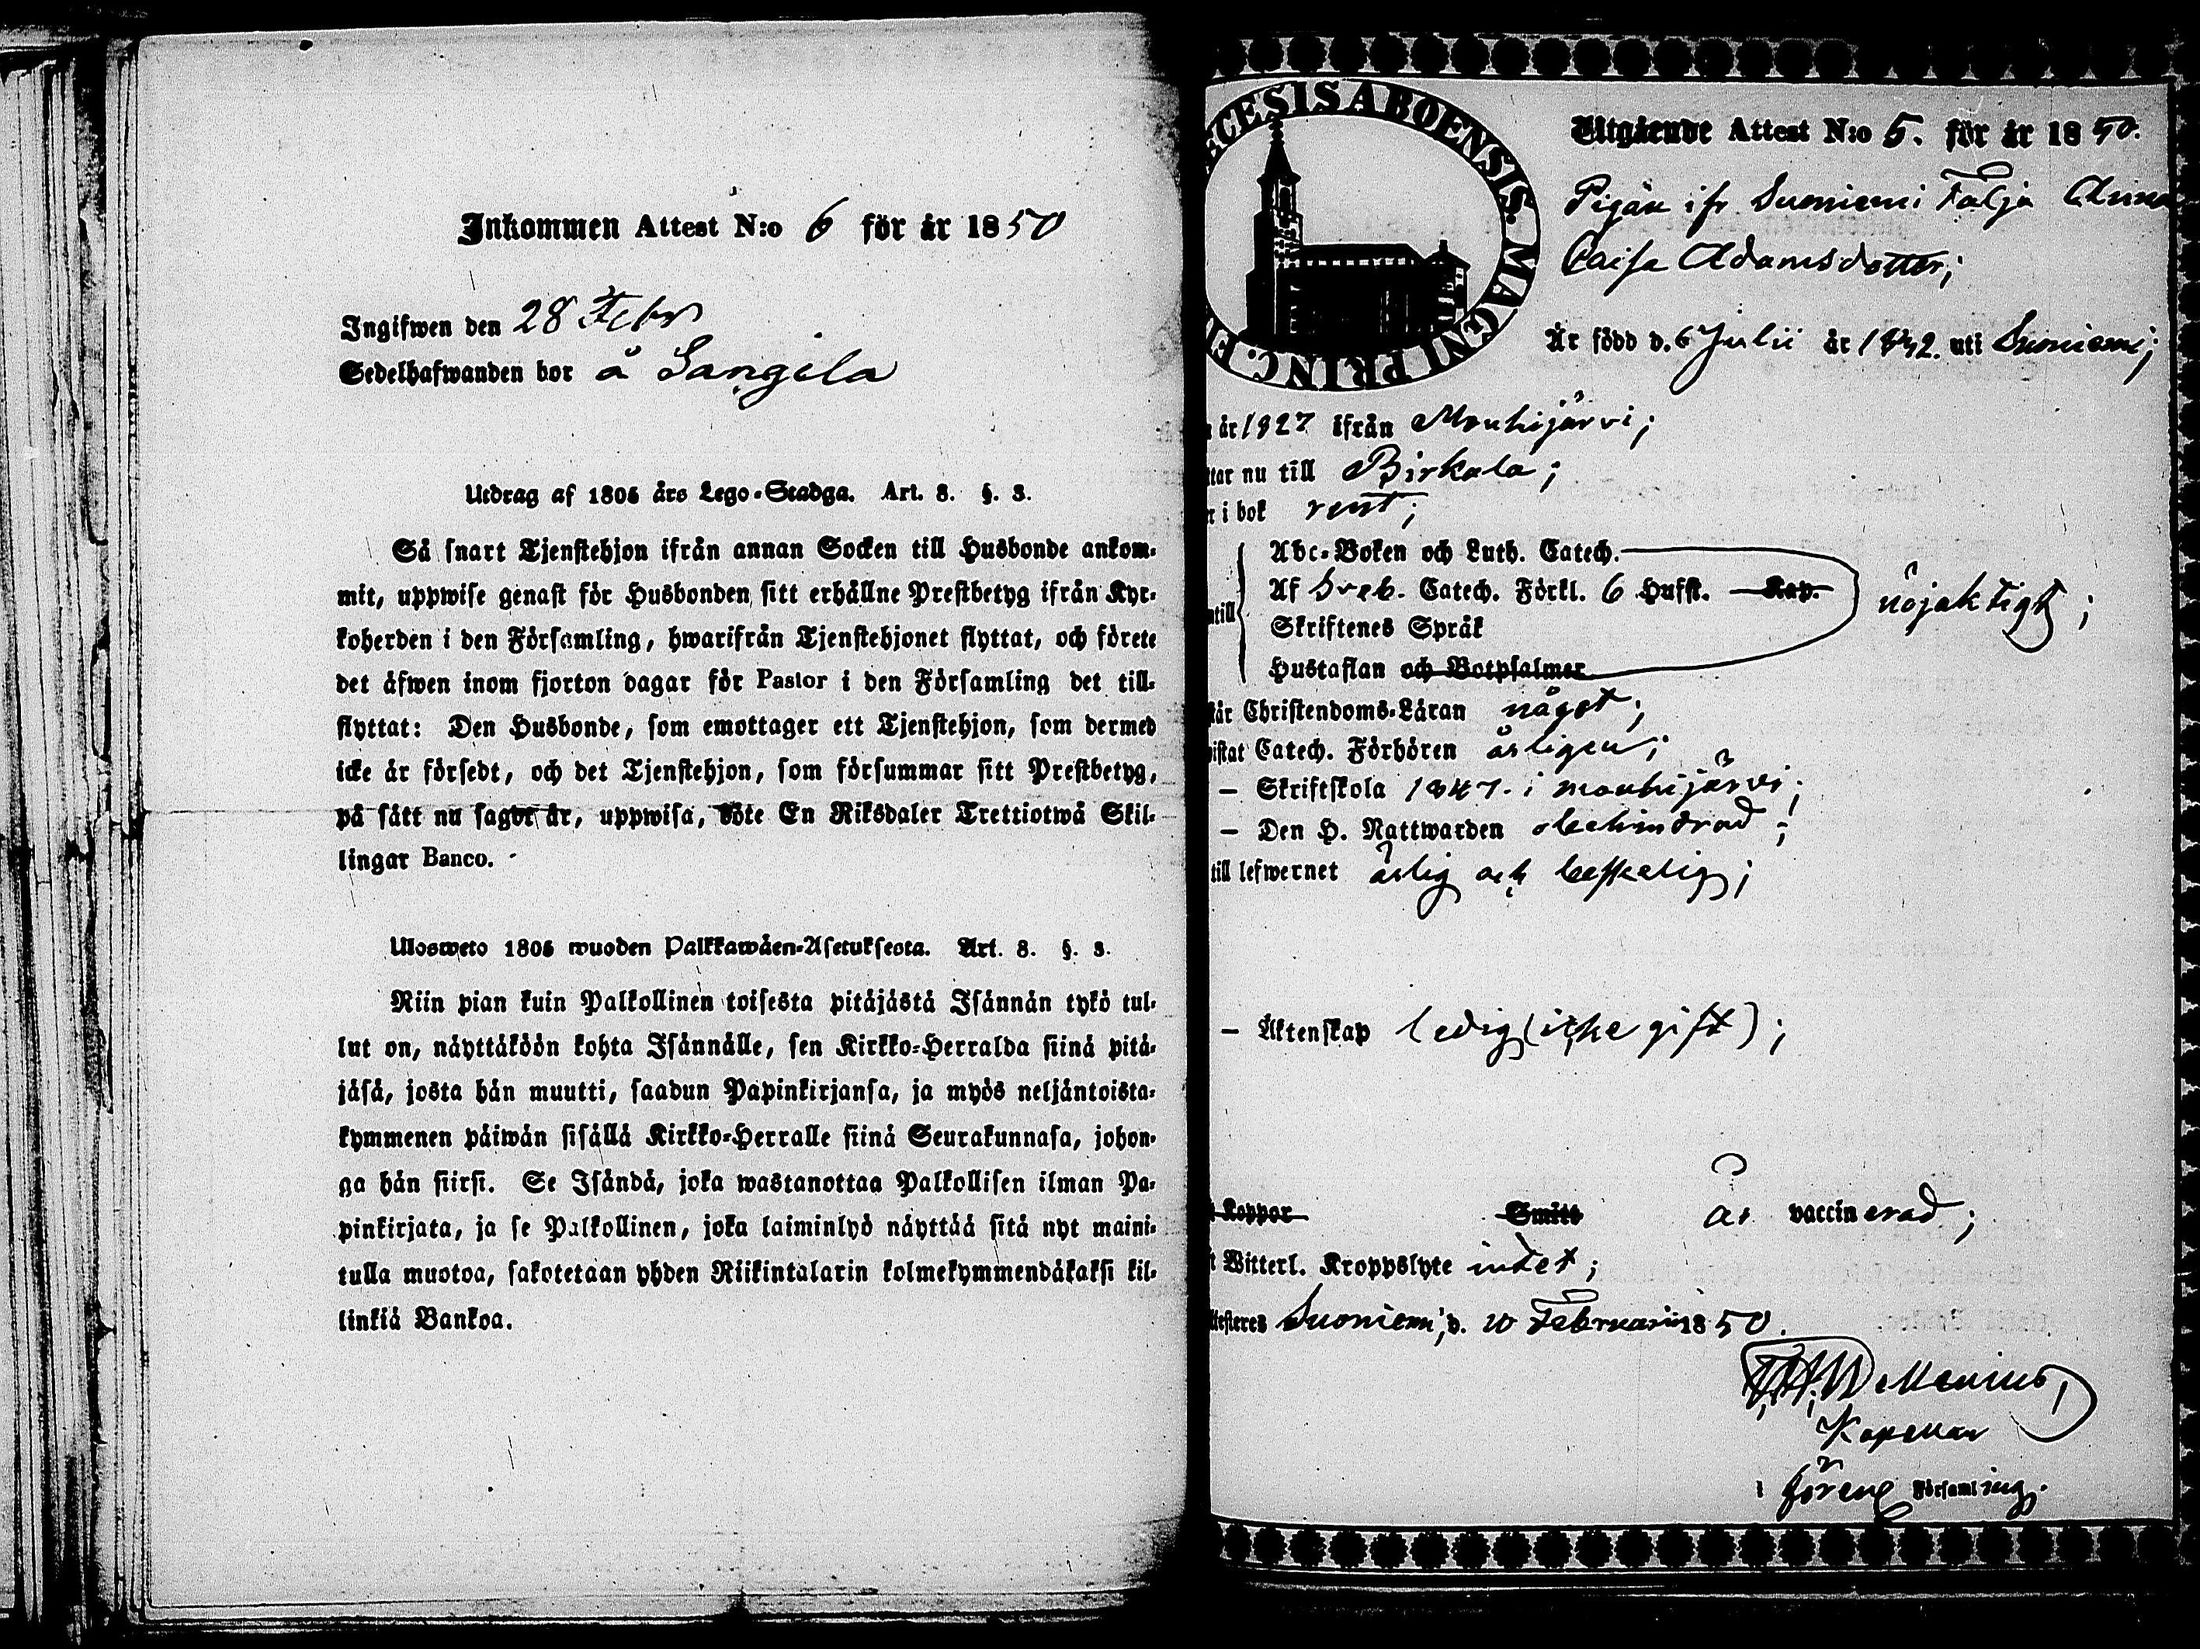 Inkommen Attest N:o 6 för år 1850
Ingifwen den 28 Febr
Sedelhafwanden bor å Sangila
Utdrag af 1805 års Lego-Stadga. Art. 8. §. 3.
Så snart Tjenstehjon ifrån annan Socken till Husbonde ankom-
mit, uppwise genast för Husbonden sitt erhållne Prestbetyg ifrån Kyr-
koherden i den Församling, hwarifrån Tjenstehjonet flyttat, och förete
det äfwen inom fjorton dagar för Pastor i den Församling det till-
flyttat: Den Husbonde, som emottager ett Tjenstehjon, som dermed
icke är försedt, och det Tjenstehjon, som försummar sitt Prestbetyg,
på sätt nu sagdt är, uppwisa, böte En Riksdaler Trettiotwå Skil-
lingar Banco.
Ulosweto 1805 wuoden Palkkawäen-Asetuksesta. Art. 8. §. 3.
Niin pian kuin Palkollinen toisesta pitäjästä Isännän tykö tul-
lut on, näyttäköön kohta Isännälle, sen Kirkko-Herralda siinä pitä-
jäsä, josta hän muutti, saadun Papinkirjansa, ja myös neljäntoista-
kymmenen päiwän sisällä Kirkko-Herralle siinä Seurakunnasa, johon-
ga hän siirsi. Se Isändä, joka wastanottaa Palkollisen ilman Pa-
pinkirjata, ja se Palkollinen, joka laiminlyö näyttää sitä nyt maini-
tulla muotoa, sakotetaan yhden Riikintalarin kolmekymmendäkaksi kil-
linkiä Bankoa.
ECESIS ABOENSIS. MAGNI PRINC. F
Utgående Attest N:o 5. för år 1850.
Pigan ifr Suoniemi Falja Anna
Caisa Adamsdotter;
Är född d. 6 Julii år 1832. uti Suoniemi;
år 1827 ifrån Mouhijärvi;
ttar nu till Birkala;
r i bok rent;
Abc-Boken och Luth. Catech.
Af Sveb. Catech. Förkl. 6 Hufst. Kap. nöjaktigt;
Skriftenes Språk
Hustaflan och Botpsalmer
står Christendoms-Läran något;
istat Catech. Förhören årligen;
— Skriftskola 1847. i Mouhijärvi;
— Den H. Nattwarden obehindrad;
till lefwernet ärlig och beskedlig;
— Äktenskap ledig (icke gift);
Koppor Smitt är vaccinerad;
t Witterl. Kroppslyte intet;
ttesteres Suoniemi, d. 10 Februarii 1850.
Wallenius
Kapellan
i förene Församling.